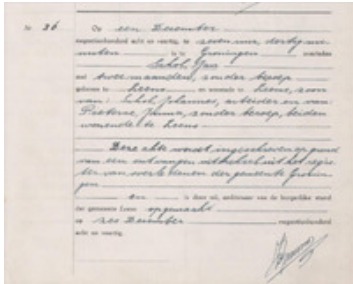 No 36 Op een December
negentienhonderd acht en veertig, te zeven uur, dertig mi-
nuten is te Groningen overleden
Schol, Jan
oud twee maanden, zonder beroep
geboren te Leens en wonende te Leens, zoon
van: Schol, Johannes, arbeider en van:
Pieterne, Janna, zonder beroep, beiden
wonende te Leens
Deze akte wordt ingeschreven op grond
van een ontvangen uittreksel uit het regis-
ter van overlijdenen der gemeente Gronin-
gen
en is door mij, ambtenaar van de burgerlijke stand
der gemeente Leens opgemaakt
op zes December negentienhonderd
acht en veertig.